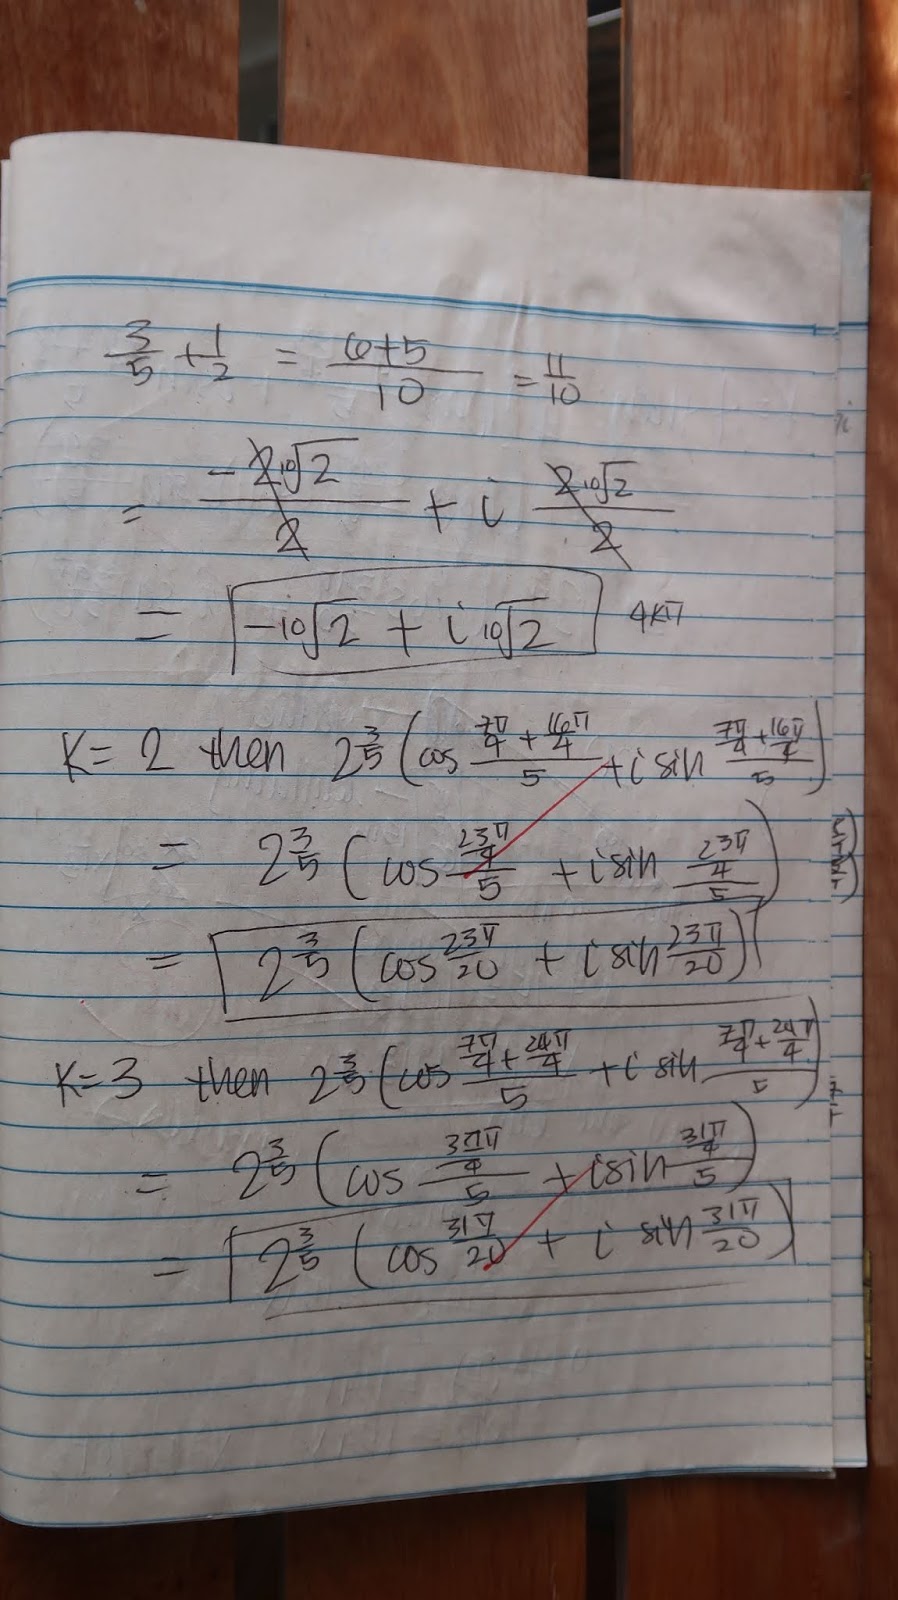 3/5 + 1/2 = (6+5)/10 = 11/10
= (-2 ¹⁰√2)/2 + i (2 ¹⁰√2)/2
= -¹⁰√2 + i ¹⁰√2 4kπ
K=2 then 2^(3/5) (cos (7π/4 + 16π/4)/5 + i sin (7π/4 + 16π/4)/5)
= 2^(3/5) (cos (23π/4)/5 + i sin (23π/4)/5)
= 2^(3/5) (cos 23π/20 + i sin 23π/20)
K=3 then 2^(3/5) (cos (7π/4 + 24π/4)/5 + i sin (7π/4 + 24π/4)/5)
= 2^(3/5) (cos (31π/4)/5 + i sin (31π/4)/5)
= 2^(3/5) (cos 31π/20 + i sin 31π/20)